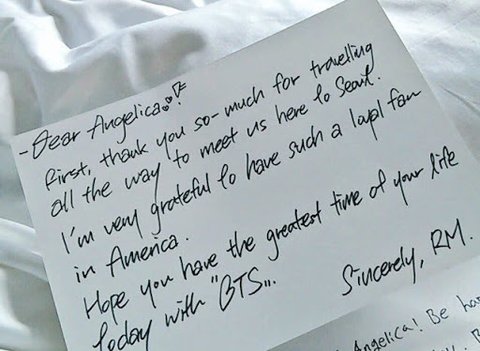 - Dear Angelica:
First, thank you so-much for travelling
all the way to meet us here to Seoul.
I'm very grateful to have such a loyal fan
in America.
Hope you have the greatest time of your life
today with "BTS"..
Sincerely, RM.
Angelica! Be